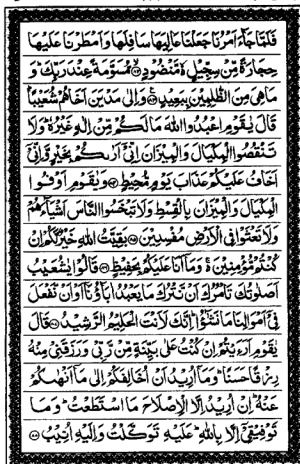 فَلَمَّا جَآءَ اَمْرُنَا جَعَلْنَا عَالِيَهَا سَافِلَهَا وَاَمْطَرْنَا عَلَيْهَا
حِجَارَةً مِّنْ سِجِّيْلٍ ۙ مَّنْضُوْدٍ ﴿٨٢﴾ مُّسَوَّمَةً عِنْدَ رَبِّكَ ؕ وَ
مَا هِيَ مِنَ الظّٰلِمِيْنَ بِبَعِيْدٍ ﴿٨٣﴾ وَاِلٰى مَدْيَنَ اَخَاهُمْ شُعَيْبًا ؕ
قَالَ يٰقَوْمِ اعْبُدُوا اللّٰهَ مَا لَكُمْ مِّنْ اِلٰهٍ غَيْرُهٗ ؕ وَلَا
تَنْقُصُوا الْمِكْيَالَ وَالْمِيْزَانَ اِنِّيْٓ اَرٰىكُمْ بِخَيْرٍ وَّاِنِّيْٓ
اَخَافُ عَلَيْكُمْ عَذَابَ يَوْمٍ مُّحِيْطٍ ﴿٨٤﴾ وَيٰقَوْمِ اَوْفُوا
الْمِكْيَالَ وَالْمِيْزَانَ بِالْقِسْطِ وَلَا تَبْخَسُوا النَّاسَ اَشْيَآءَهُمْ
وَلَا تَعْثَوْا فِي الْاَرْضِ مُفْسِدِيْنَ ﴿٨٥﴾ بَقِيَّتُ اللّٰهِ خَيْرٌ لَّكُمْ اِنْ
كُنْتُمْ مُّؤْمِنِيْنَ ۚ وَمَآ اَنَا عَلَيْكُمْ بِحَفِيْظٍ ﴿٨٦﴾ قَالُوْا يٰشُعَيْبُ
اَصَلٰوتُكَ تَاْمُرُكَ اَنْ نَّتْرُكَ مَا يَعْبُدُ اٰبَآؤُنَآ اَوْ اَنْ نَّفْعَلَ
فِيْٓ اَمْوَالِنَا مَا نَشٰٓؤُا ؕ اِنَّكَ لَاَنْتَ الْحَلِيْمُ الرَّشِيْدُ ﴿٨٧﴾ قَالَ
يٰقَوْمِ اَرَءَيْتُمْ اِنْ كُنْتُ عَلٰى بَيِّنَةٍ مِّنْ رَّبِّيْ وَرَزَقَنِيْ مِنْهُ
رِزْقًا حَسَنًا ؕ وَمَآ اُرِيْدُ اَنْ اُخَالِفَكُمْ اِلٰى مَآ اَنْهٰىكُمْ
عَنْهُ ؕ اِنْ اُرِيْدُ اِلَّا الْاِصْلَاحَ مَا اسْتَطَعْتُ ؕ وَمَا
تَوْفِيْقِيْٓ اِلَّا بِاللّٰهِ ؕ عَلَيْهِ تَوَكَّلْتُ وَاِلَيْهِ اُنِيْبُ ﴿٨٨﴾